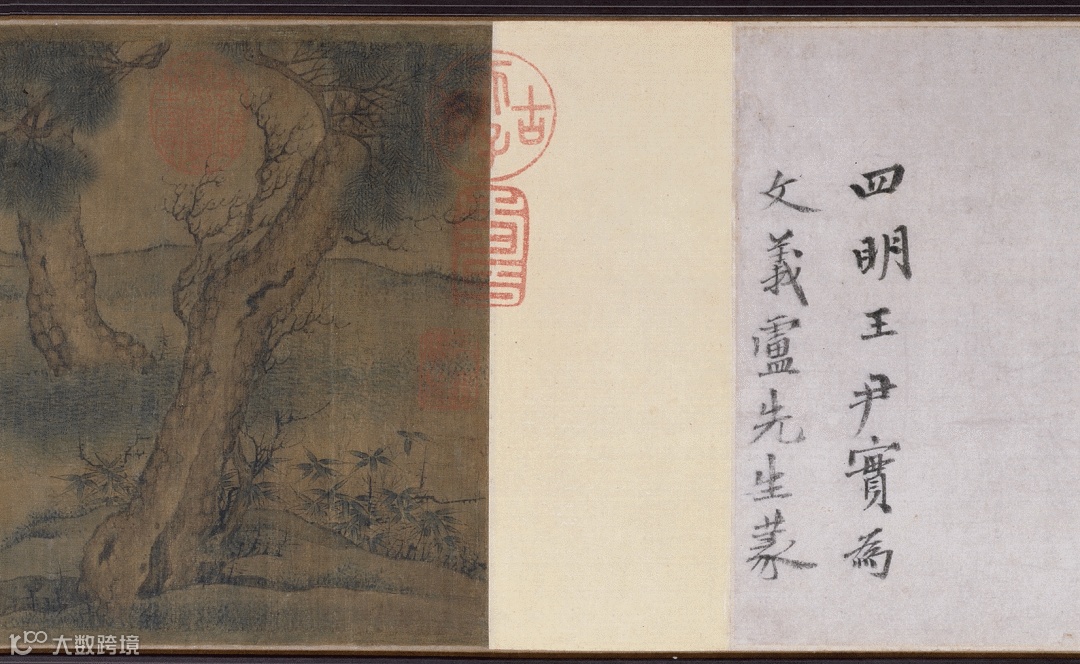 四明王尹實為
文義盧先生篆
古
壽
大数跨境